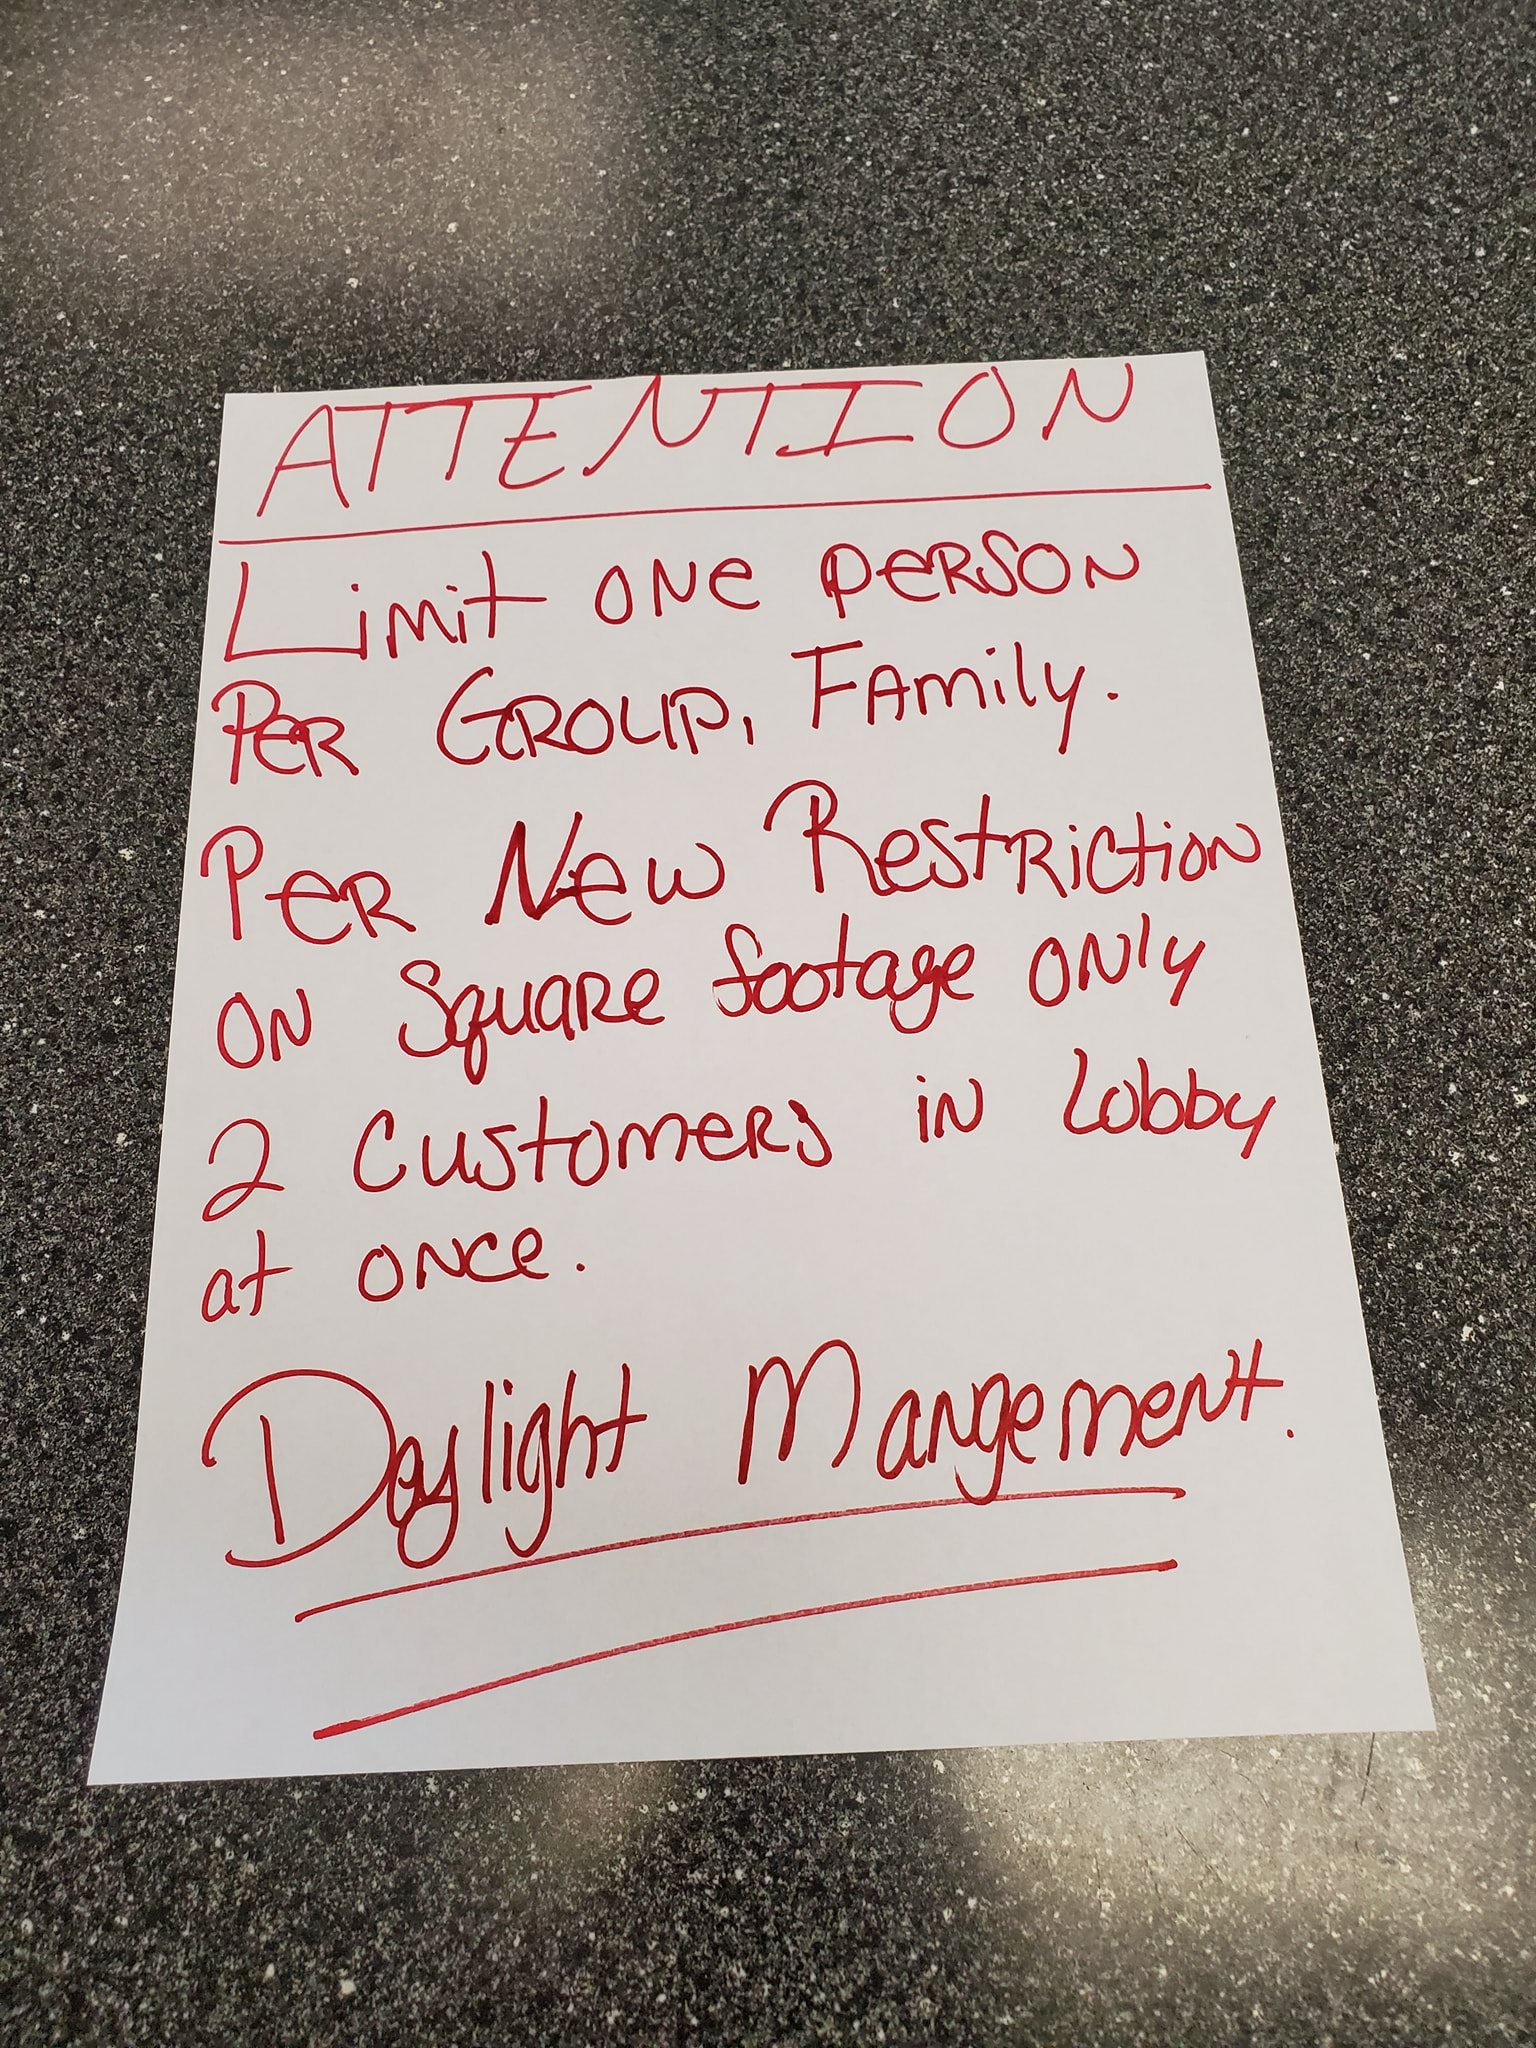 ATTENTION
Limit one person
Per Group, Family.
Per New Restriction
on Square footage only
2 Customers in Lobby
at once.
Daylight Mangement.